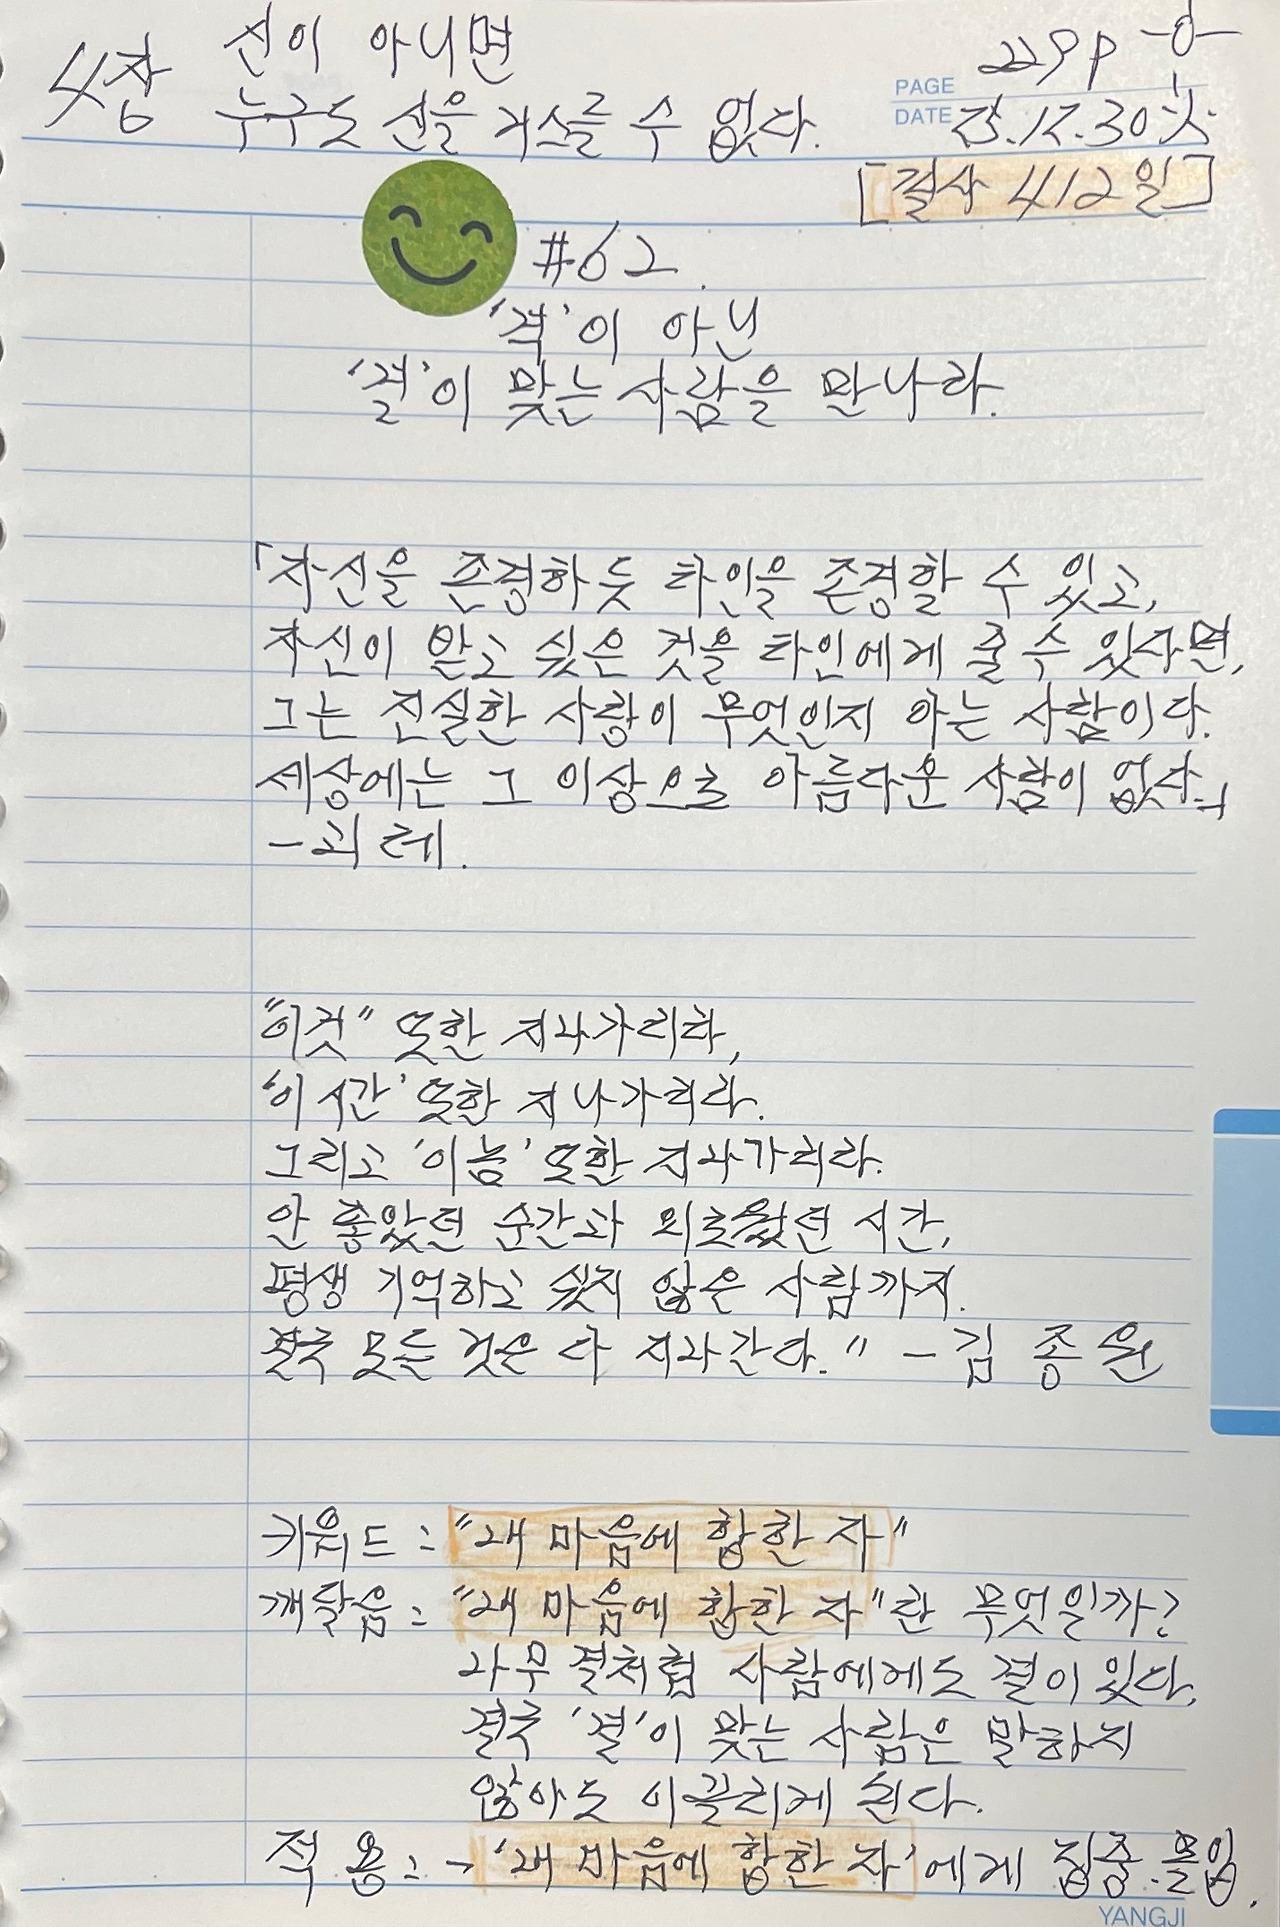 4장
신이 아니면
누구도 신을 거스를 수 없다.
PAGE 229p
DATE 25.12.30.
[필사 412일]
#62.
'격'이 아닌
'결'이 맞는 사람을 만나라.
「자신을 존경하듯 타인을 존경할 수 있고,
자신이 받고 싶은 것을 타인에게 줄 수 있다면,
그는 진실한 사랑이 무엇인지 아는 사람이다.
세상에는 그 이상으로 아름다운 사람이 없다.」
- 괴테.
"'이것" 또한 지나가리라,
'이 시간' 또한 지나가리라.
그리고 '이놈' 또한 지나가리라.
안 좋았던 순간과 외로웠던 시간,
평생 기억하고 싶지 않은 사람까지.
결국 모든 것은 다 지나간다." - 김종원
키워드 : "내 마음에 합한 자"
깨달음 : "내 마음에 합한 자"란 무엇일까?
나무 결처럼 사람에게도 결이 있다.
결국 '결'이 맞는 사람은 말하지
않아도 이끌리게 된다.
적용 : → '내 마음에 합한 자'에게 집중·몰입.
YANGJI